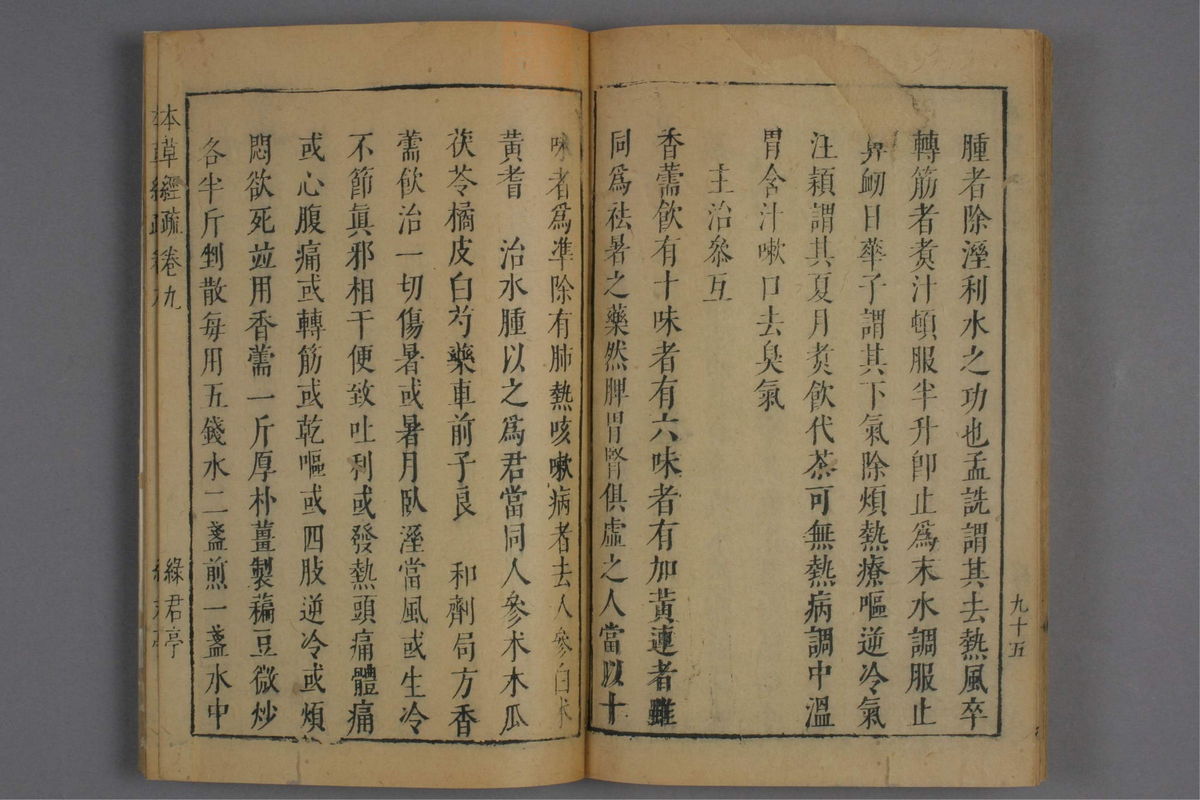 腫者除溼利水之功也孟詵謂其去熱風卒
轉筋者煑汁頓服半升卽止爲末水調服止
鼻衂日華子謂其下氣除煩熱療嘔逆冷氣
注頴謂其夏月煑飲代茶可無熱病調中溫
胃含汁嗽口去臭氣
主治叅互
香薷飲有十味者有六味者有加黃連者雖
同爲祛暑之藥然脾胃腎俱虛之人當以十
九十五
味者爲準除有肺熱咳嗽病者去人參白朮
黃耆 治水腫以之爲君當同人參术木瓜
茯苓橘皮白芍藥車前子良 和劑局方香
薷飲治一切傷暑或暑月臥溼當風或生冷
不節眞邪相干便致吐利或發熱頭痛體痛
或心腹痛或轉筋或乾嘔或四肢逆冷或煩
悶欲死並用香薷一斤厚朴薑製藊豆微炒
各半斤剉散每用五錢水二盞煎一盞水中
本草經疏卷九
綠君亭